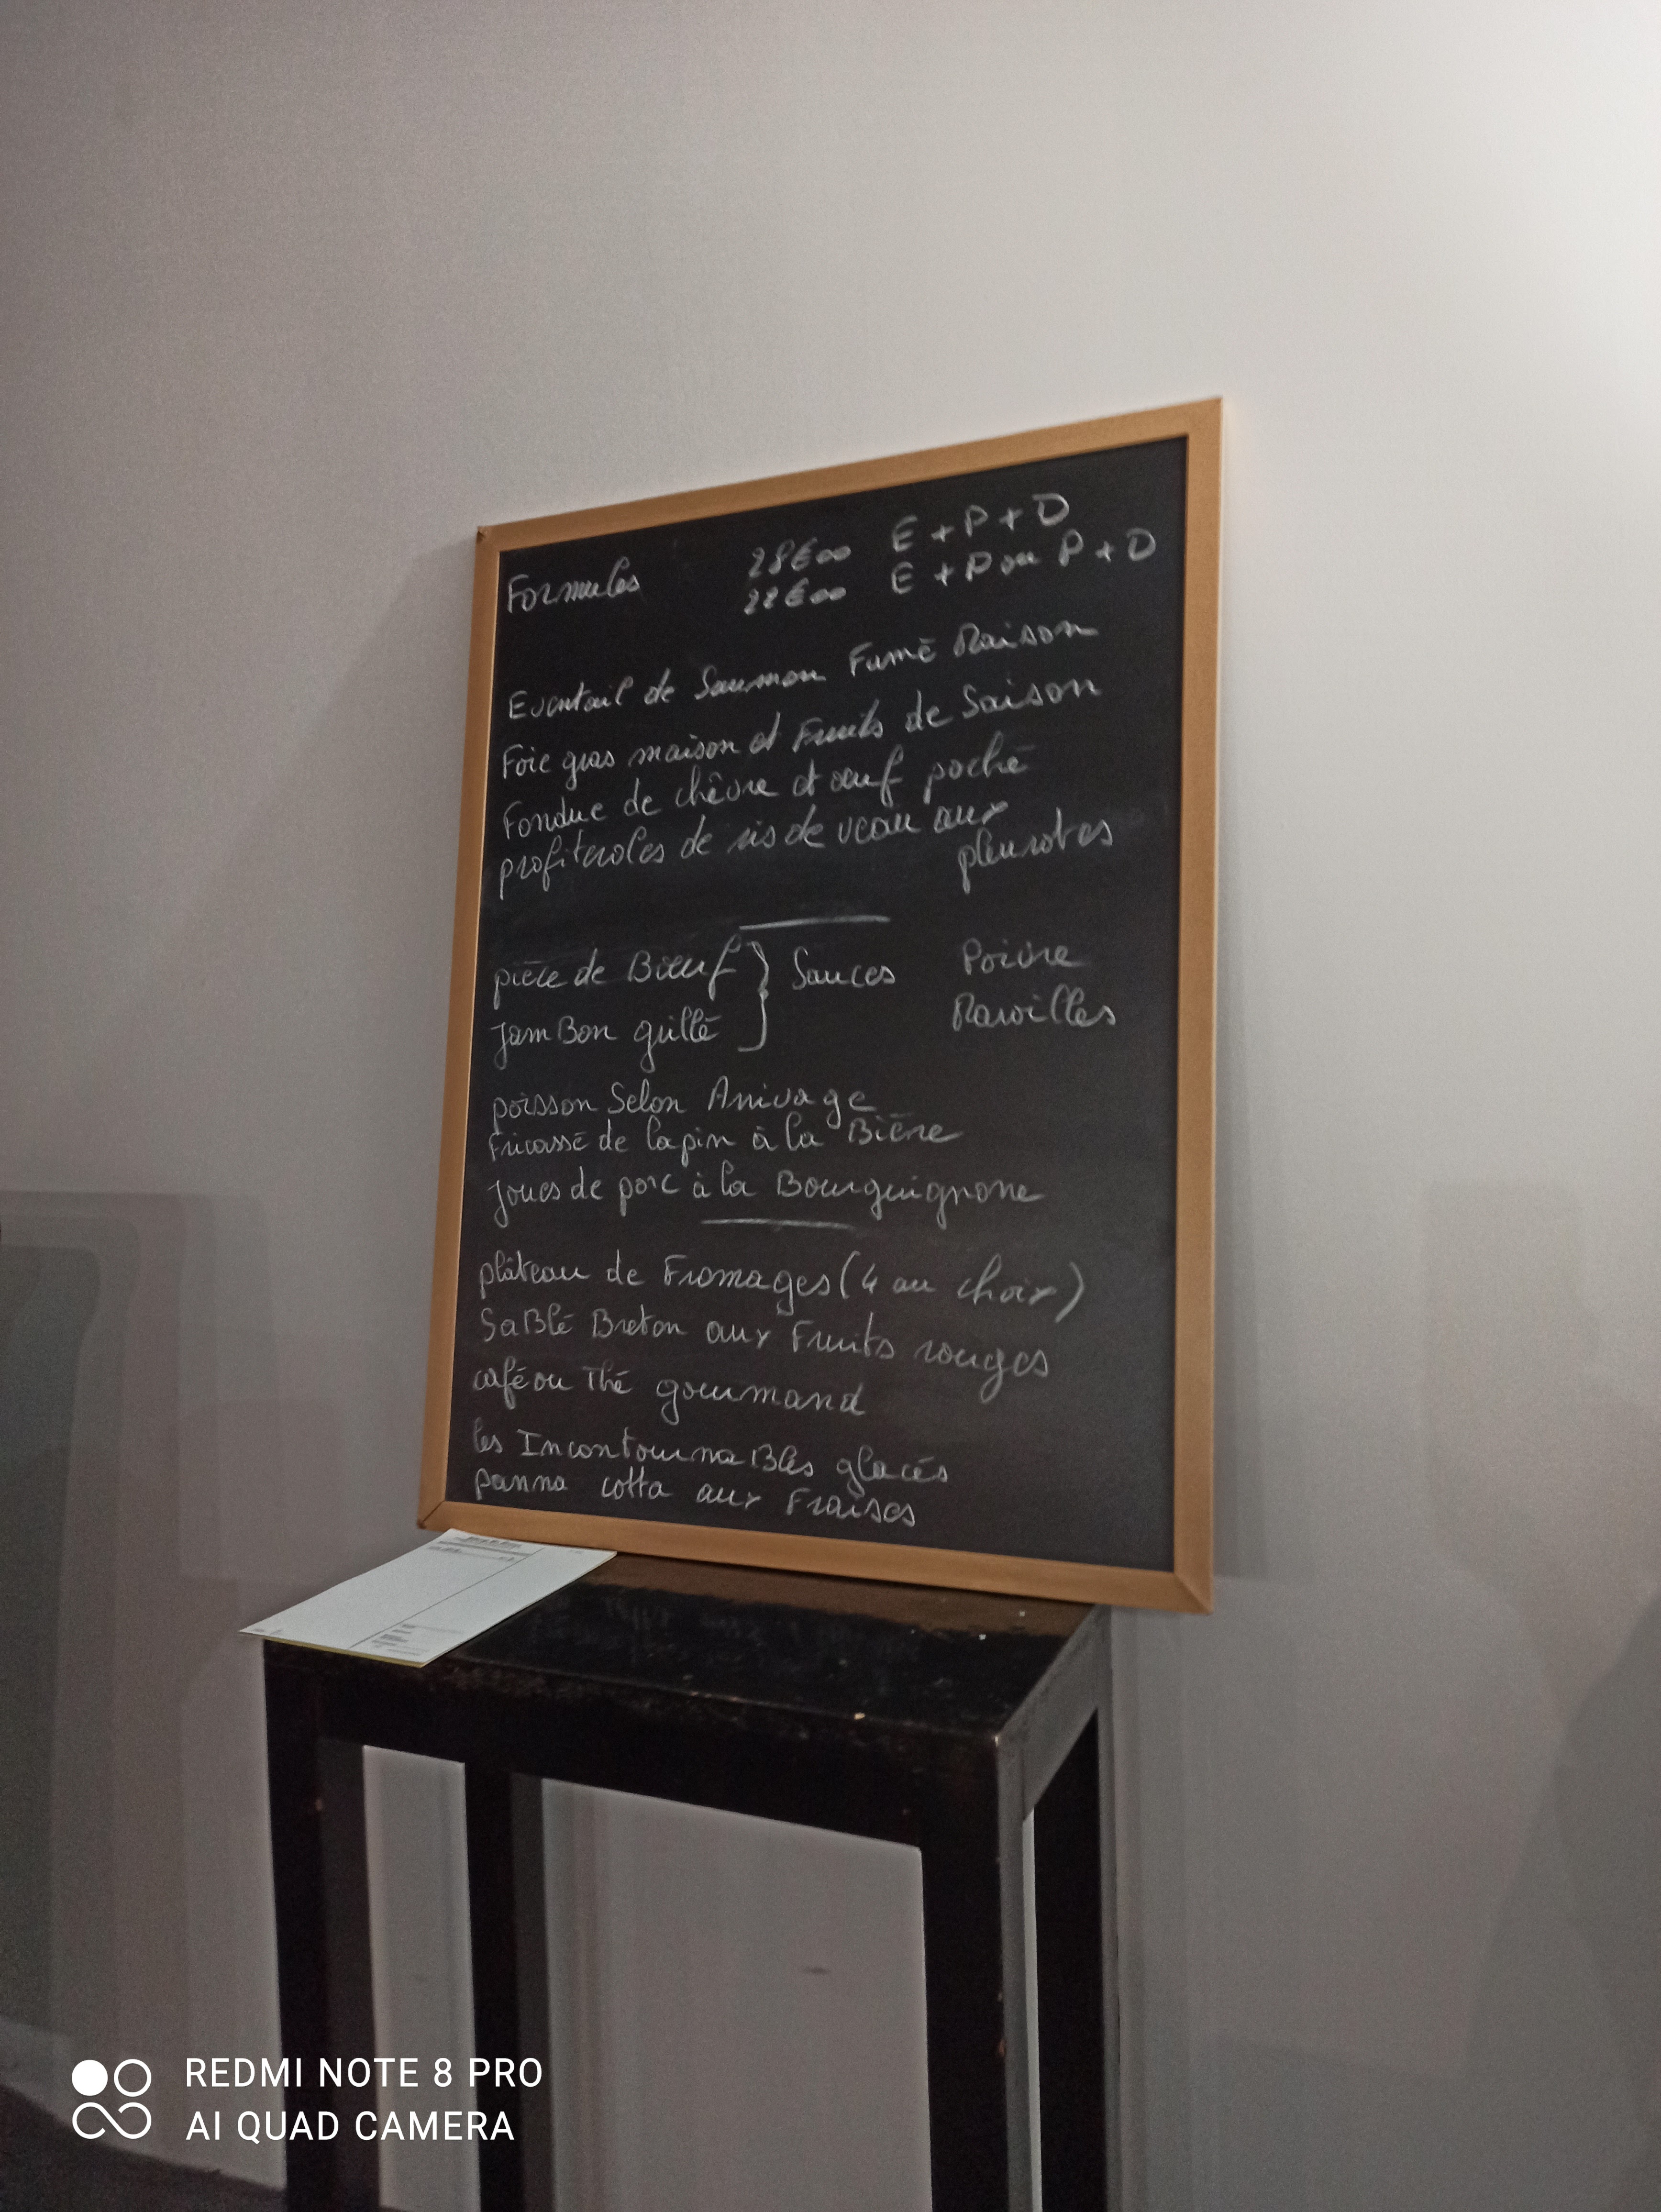 Formules 28€00 E + P + D
22€00 E + P ou P + D
Eventail de Saumon Fumé Maison
Foie gras maison et Fruits de Saison
Fondue de chèvre et œuf poché
profiteroles de ris de veau aux
pleurotes
pièce de Bœuf } Sauces Poivre
JamBon grillé Maroilles
poisson Selon Arrivage
Fricassé de lapin à la Bière
Joues de porc à la Bourguignone
plâteau de Fromages (4 au choix)
SaBlé Breton aux Fruits rouges
café ou Thé gourmand
les IncontournaBles glacés
panna cotta aux Fraises
REDMI NOTE 8 PRO
AI QUAD CAMERA